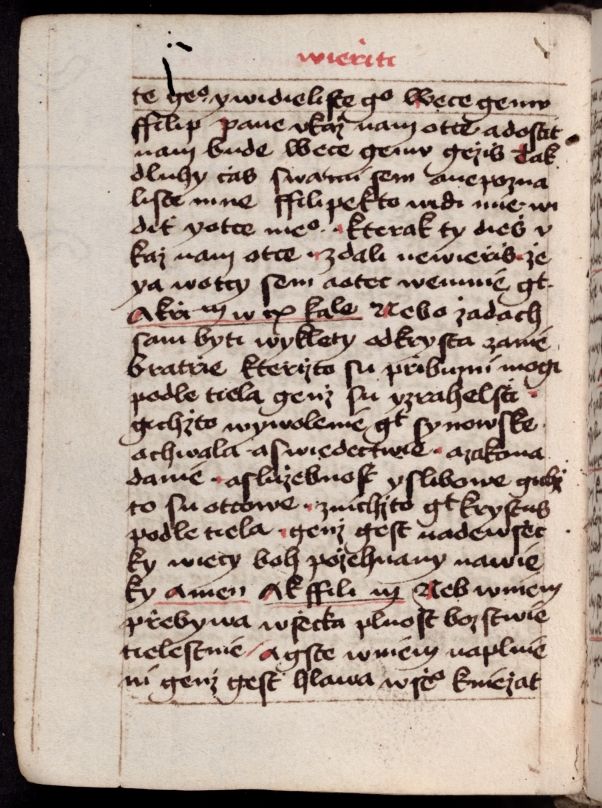 wieriti
te geº. y widieliste gº Wece gemu
ffilip pane vkaz nam otce a dostit
nam bude Wece gemu gezis Tak
dluhy cas s wami sem a nepozna
liste mne ffilipe kto widi mne wi
di y otce meº. kterak ty dies v
kaz nam otce. zdali newieris. ze
ya w otcy sem a otec wemnie gt.
A k w kale Nebo zadach
sam byti wyklety od krysta za me
bratrie kterizto su pribuzni mogi
podle tiela genz su yzrahelsti.
gichzto wywolenie gt synowske.
a chwala a swiedectwie. a zakona
danie. a sluzebnost y slibowe gichz
to su otcowe. z nichzto gt krystus
podle tiela. genz gest nadewsec
ky wiecy boh pozehnany na wie
ky amen A k ffili Neb w niem
prebywa wsecka plnost bozstwie
tielestnie / A gste w niem naplnie
ni genz gest hlawa wseº kniezat